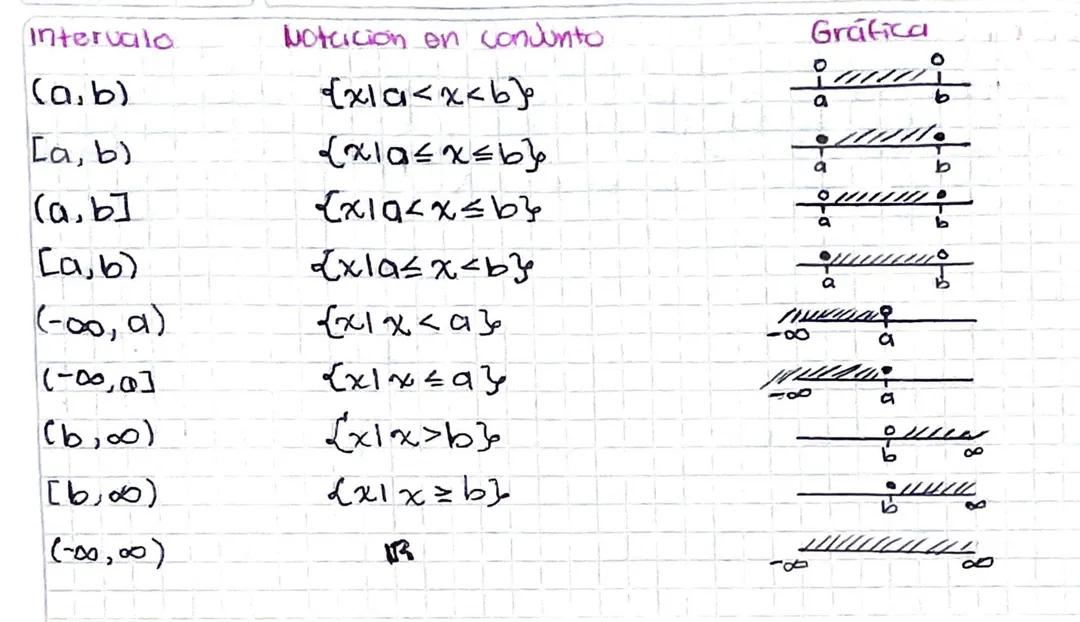 Intervalo Notación en conjunto Gráfica
(a,b) {x|a<x<b} a b
[a,b) {x|a≤x≤b} a b
(a,b] {x|a<x≤b} a b
[a,b) {x|a≤x<b} a b
(-∞,a) {x|x<a} -∞ a
(-∞,a] {x|x≤a} -∞ a
(b,∞) {x|x>b} b ∞
[b,∞) {x|x≥b} b ∞
(-∞,∞) ℝ -∞ ∞